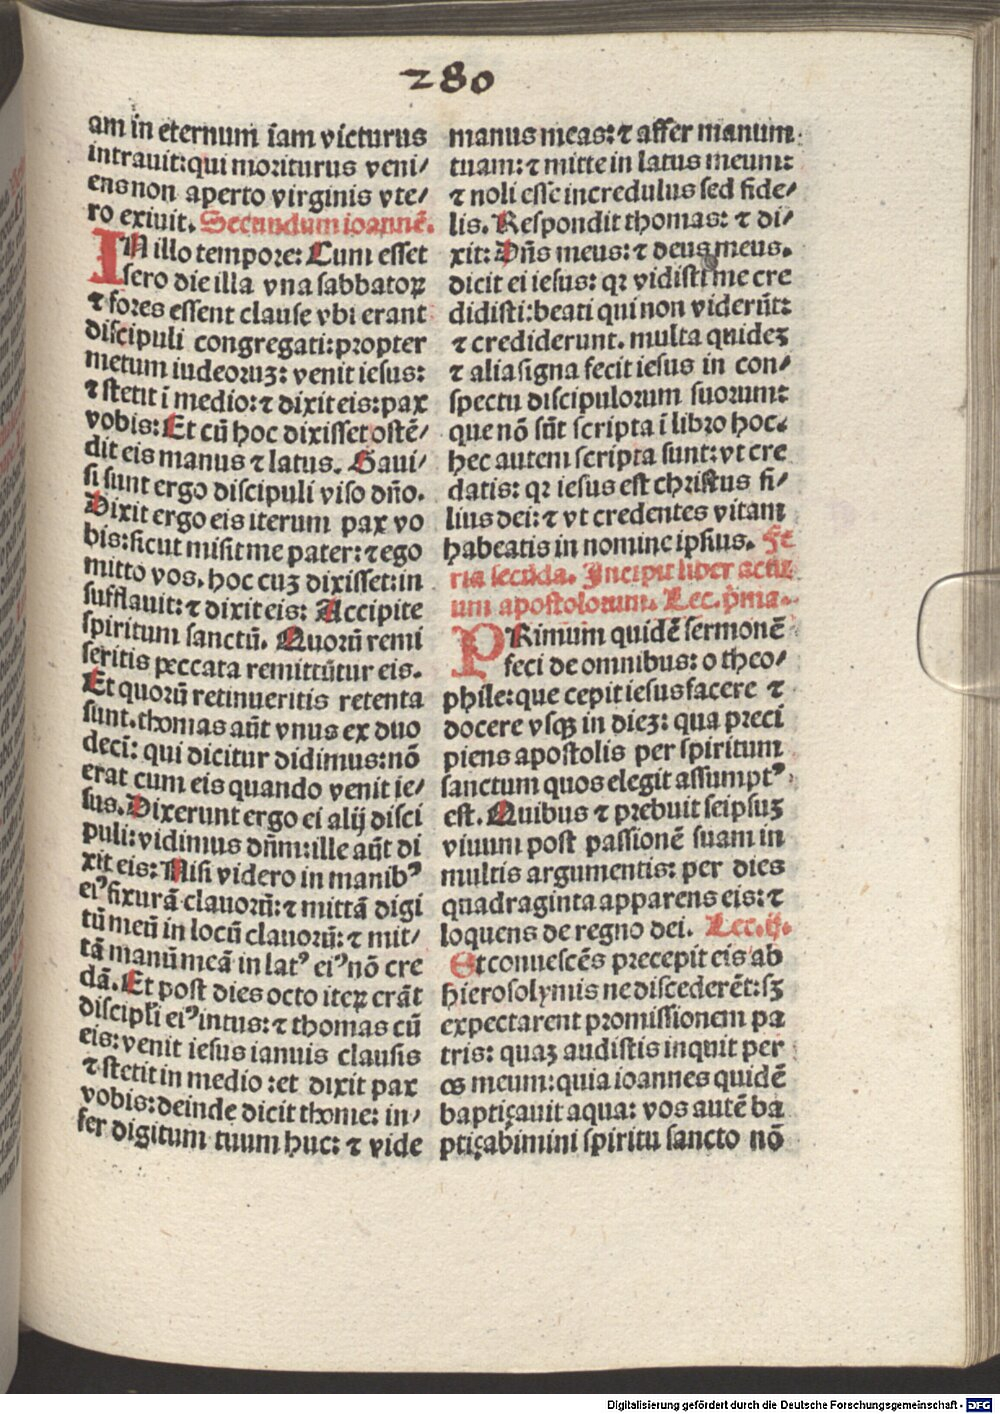 280
am in eternum iam victurus
intrauit:qui moriturus veni/
ens non aperto virginis vte/
ro exiuit. Secundum ioannē.
IN illo tempore: Cum esset
sero die illa vna sabbatoꝝ
⁊ fores essent clause vbi erant
discipuli congregati:propter
metum iudeoruꝫ: venit iesus:
⁊ stetit ī medio:⁊ dixit eis:pax
vobis: Et cū hoc dixisset ostē/
dit eis manus ⁊ latus. Gaui/
si sunt ergo discipuli viso dño.
Dixit ergo eis iterum pax vo
bis:sicut misit me pater:⁊ ego
mitto vos. hoc cuꝫ dixisset:in
sufflauit:⁊ dixit eis: Accipite
spiritum sanctū. Quorū remi
seritis peccata remittūtur eis.
Et quorū retinueritis retenta
sunt. thomas aūt vnus ex duo
deci: qui dicitur didimus:nō
erat cum eis quando venit ie/
sus. Dixerunt ergo ei alij disci
puli: vidimus dñm:ille aūt di
xit eis: Nisi videro in manibꝰ
eiꝰ fixurā clauorū:⁊ mittā digi
tū meū in locū clauorū:⁊ mit/
tā manū meā in latꝰ eiꝰ nō cre
dā. Et post dies octo iteꝝ erāt
discipli eiꝰ intus:⁊ thomas cū
eis: venit iesus ianuis clausis
⁊ stetit in medio :et dixit pax
vobis:deinde dicit thome: in/
fer digitum tuum huc: ⁊ vide
manus meas:⁊ affer manum
tuam:⁊ mitte in latus meum:
⁊ noli esse incredulus sed fide/
lis. Respondit thomas: ⁊ di/
xit: Dñs meus:⁊ deus meus.
dicit ei iesus: qꝛ vidisti me cre
didisti:beati qui non viderūt:
⁊ crediderunt. multa quideꝫ
⁊ alia signa fecit iesus in con/
spectu discipulorum suorum:
que nō sūt scripta ī libro hoc.
hec autem scripta sunt:vt cre
datis: qꝛ iesus est christus fi/
lius dei:⁊ vt credentes vitam
habeatis in nomine ipsius. Fe
ria secūda. Incipit liber actu
um apostolorum. Lec. p̄ma.
PRimum quidē sermonē
feci de omnibus: o theo/
phile:que cepit iesus facere ⁊
docere vsqꝫ in dieꝫ: qua preci
piens apostolis per spiritum
sanctum quos elegit assumptꝰ
est. Quibus ⁊ prebuit seipsuꝫ
viuum post passionē suam in
multis argumentis: per dies
quadraginta apparens eis:⁊
loquens de regno dei. Lec.ij.
Et conuescēs precepit eis ab
hierosolymis ne discederēt:sꝫ
expectarent promissionem pa
tris: quaꝫ audistis inquit per
os meum:quia ioannes quidē
baptiçauit aqua: vos autē ba
ptiçabimini spiritu sancto nō
Digitalisierung gefördert durch die Deutsche Forschungsgemeinschaft - DFG